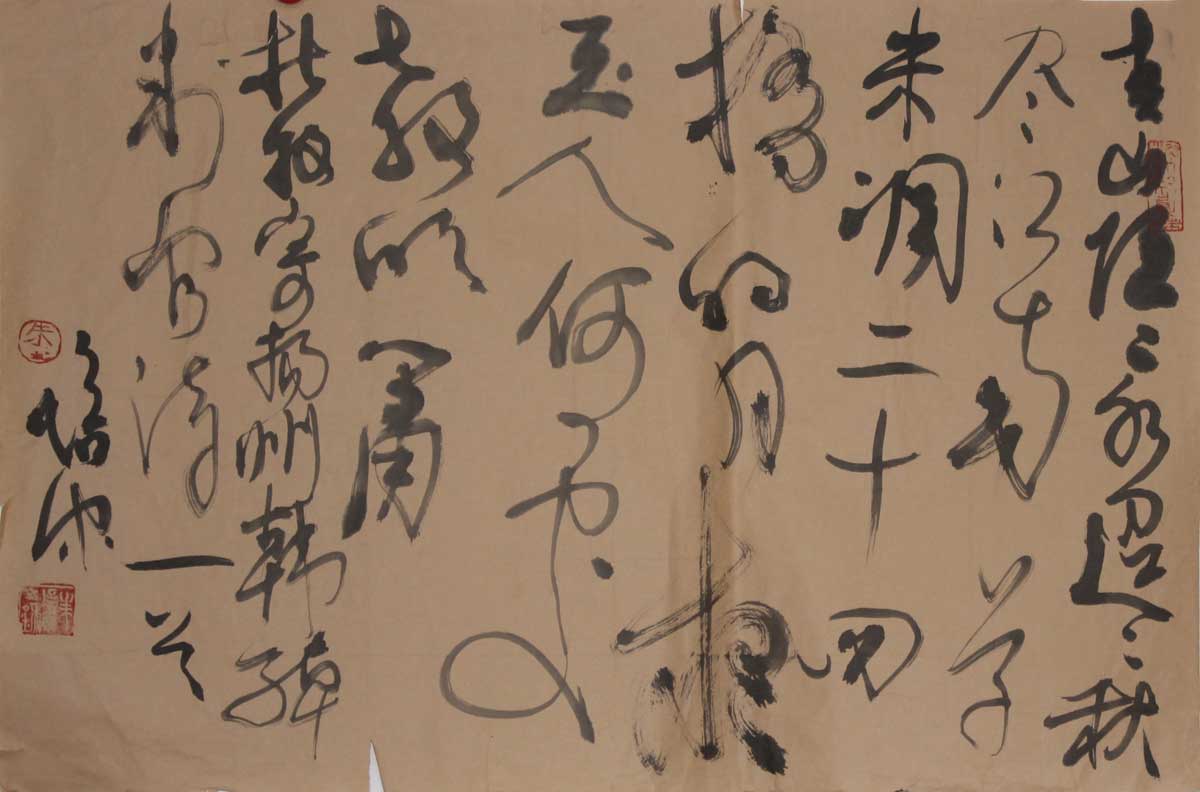 青山隐〻水迢〻秋
尽江南草
未凋二十四
桥明月夜
玉人何处
教吹箫
杜牧寄扬州韩绰
判官诗一首